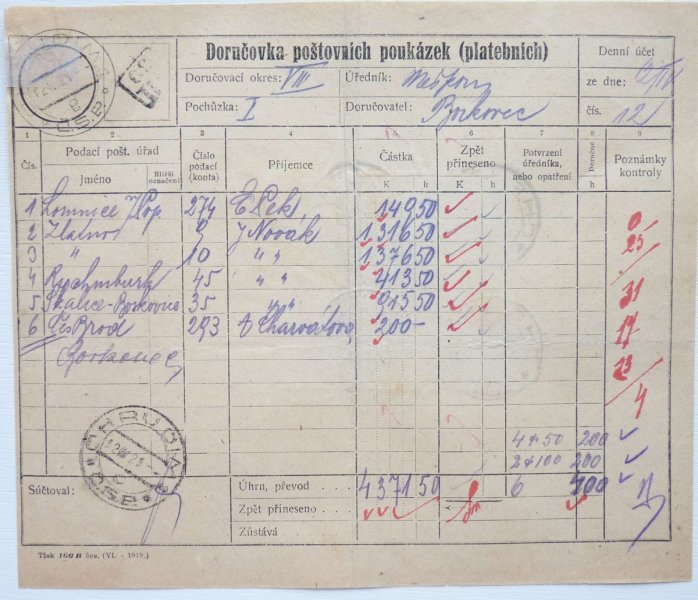 Doručovka poštovních poukázek (platebních)
Doručovací okres: VIII Úředník:
Pochůzka: I Doručovatel: Borkovec
Denní účet
ze dne:
čís. 12
1 2 3 4 5 6 7 8 9
Čís. Podací pošt. úřad Číslo podací (konta) Příjemce Částka Zpět přineseno Potvrzení úředníka, nebo opatření Doručné Poznámky kontroly
Jméno Bližší označení K h K h h
1 Lomnice n/Pop 274 E Pek 149 50 0
2 Zlatno 9 J Novák 1316 50 25
3 " 10 " " 1376 50
4 Rychmburk 45 " " 413 50 31
5 Skalice-Boskovice 35 " " 915 50 17
6 Čes Brod 293 A Charvátova 200 - 23
Borkovec 4
CHRUDIM
Č.S.P.
4 à 50 200
2 à 100 200
Súčtoval: Úhrn, převod 4371 50 6 400
Zpět přineseno
Zůstává
Tisk 166 B čes. (VI. - 1919.)